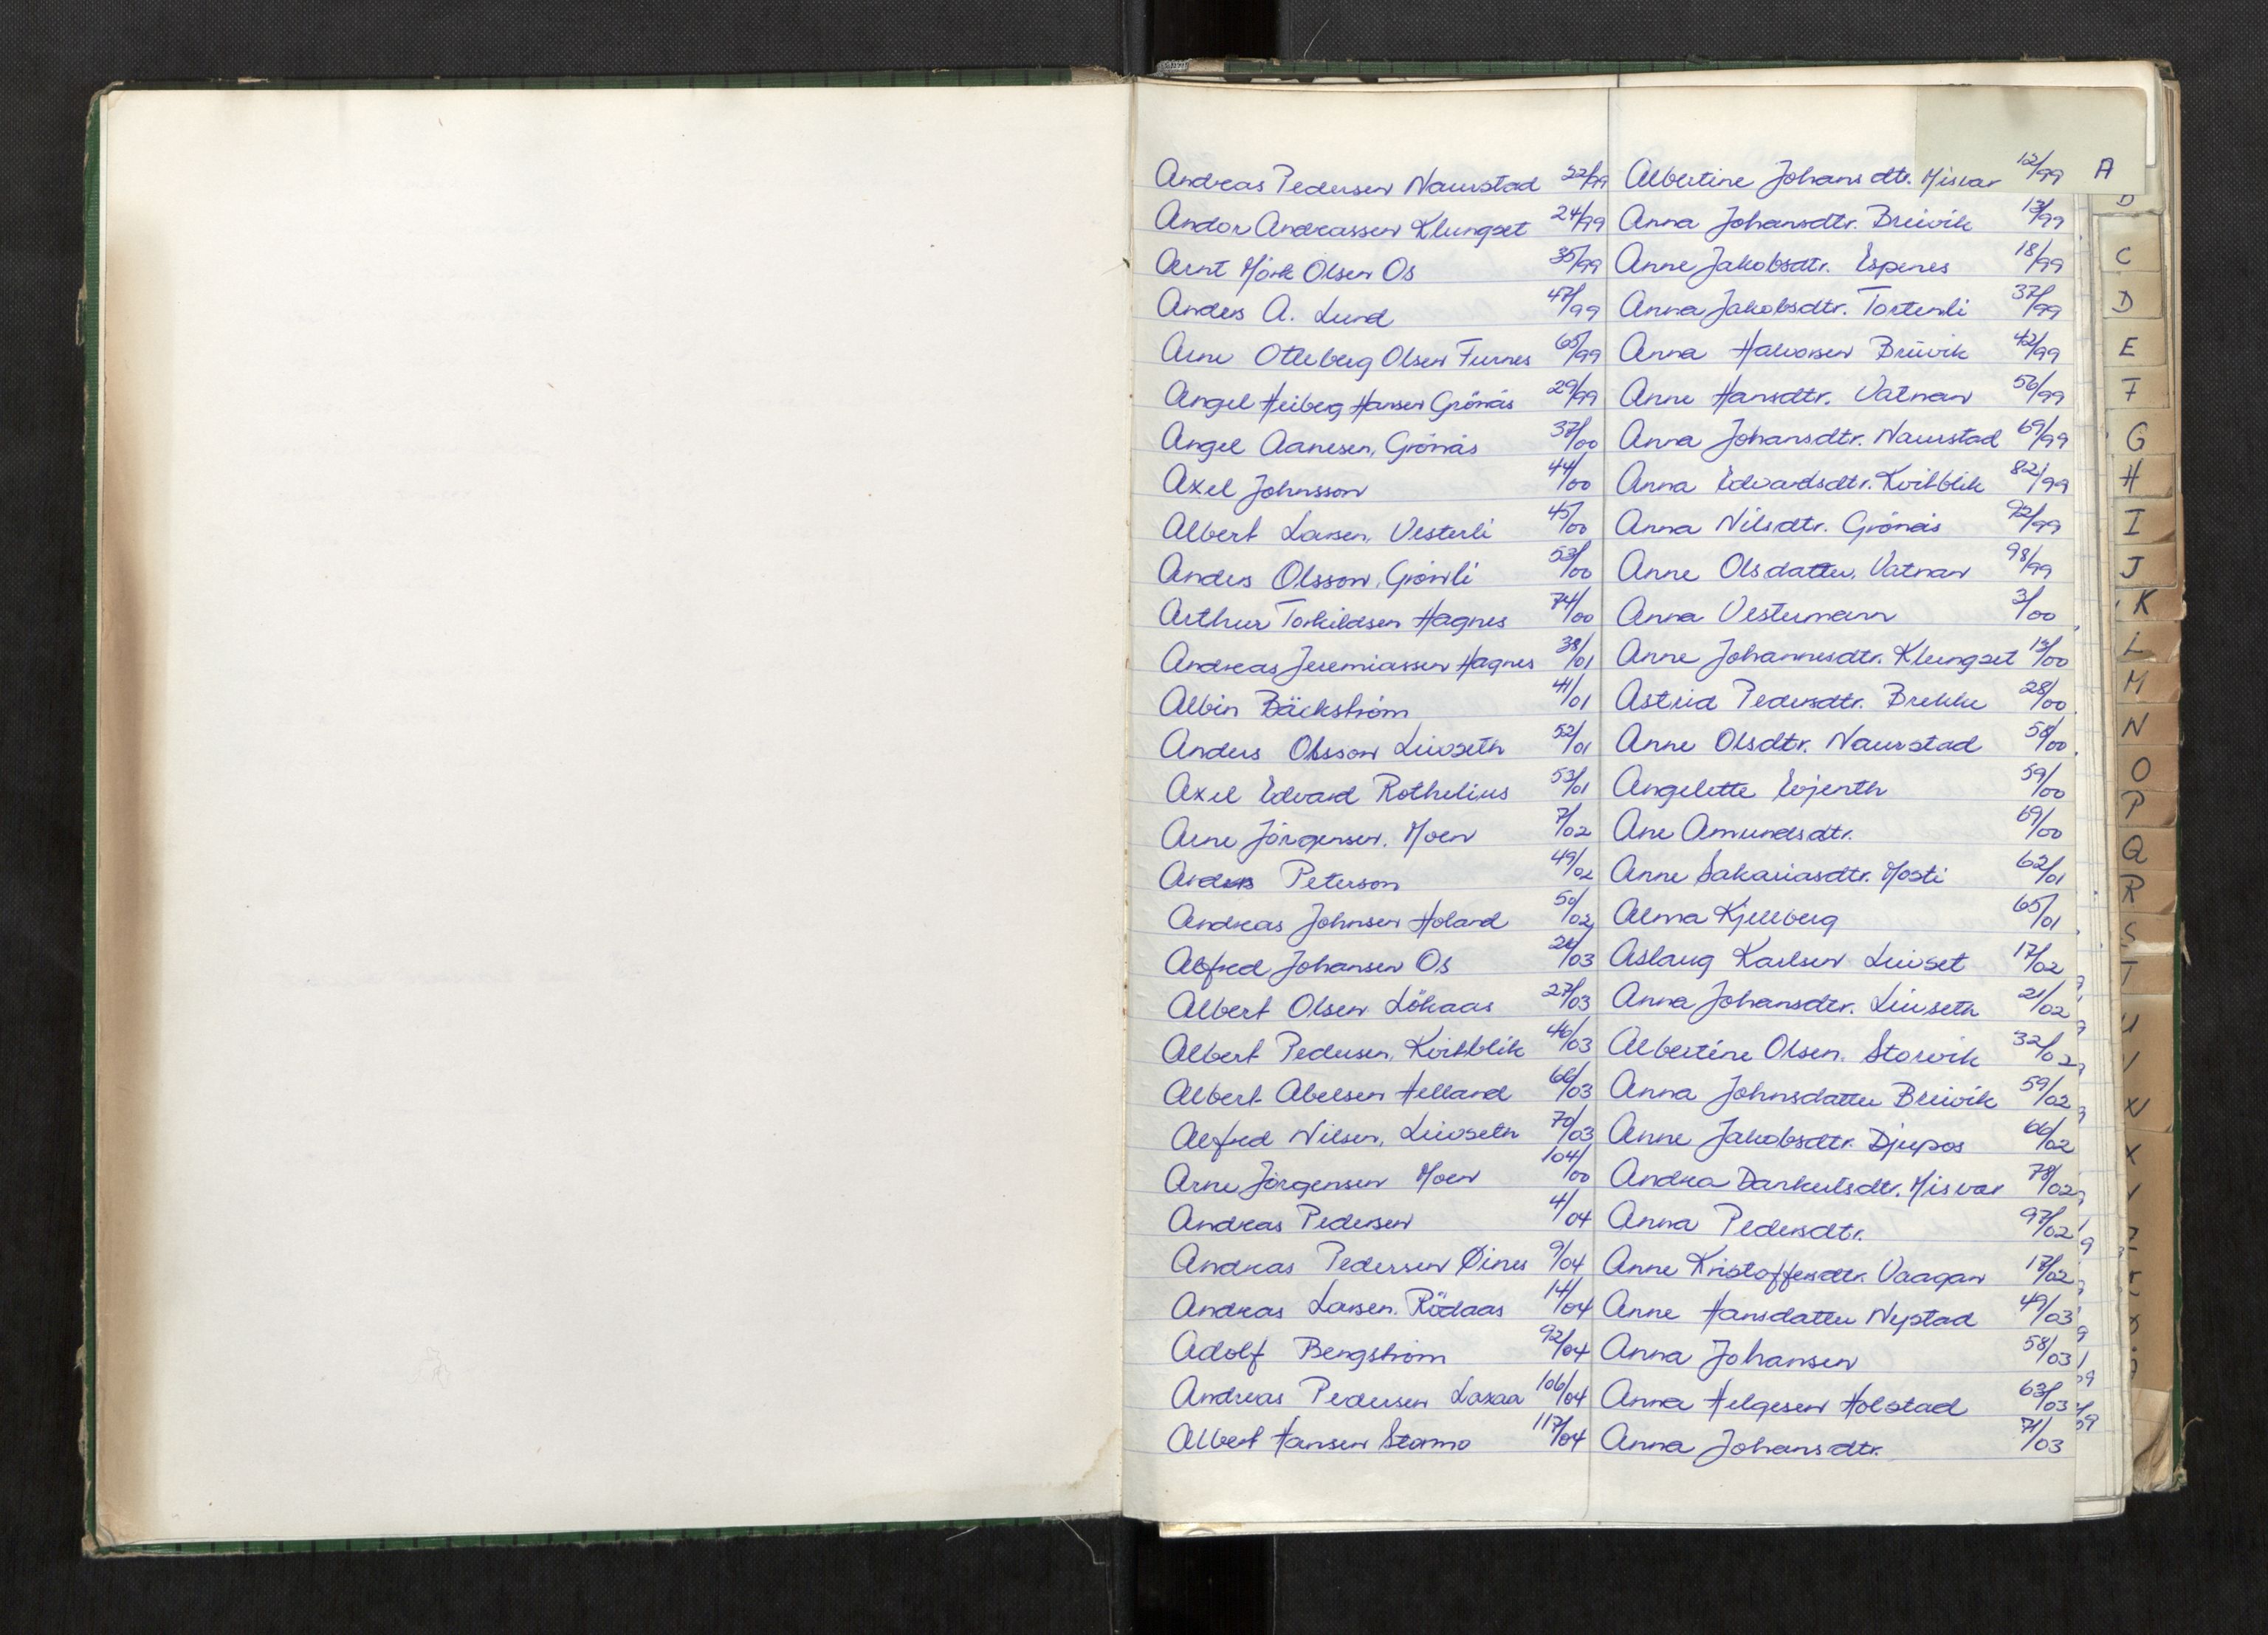 Andreas Pedersen Naurstad 22/99
Andor Andreassen Klungset 24/99
Arnt Mörk Olsen Os 35/99
Anders A. Lund 47/99
Arne Otteberg Olsen Furnes 65/99
Angel Heiberg Hansen Grönås 29/99
Angel Aanesen, Grönås 37/00
Axel Johnsson 44/00
Albert Larsen, Vesterli 45/00
Anders Olsson, Grönli 53/00
Arthur Torkildsen Hagnes 74/00
Andreas Jeremiassen Hagnes 38/01
Albin Bäckström 41/01
Anders Olsson Leivseth 52/01
Axel Edvard Rothelius 53/01
Arne Jörgensen, Moen 7/02
Anders Peterson 49/02
Andreas Johnsen Holand 50/02
Alfred Johansen Os /03
Albert Olsen Lökaas 27/03
Albert Pedersen, Kvikblik 46/03
Albert Abelsen Helland 66/03
Alfred Nilsen, Leivseth 70/03
Arne Jörgensen Moen 104/00
Andreas Pedersen 4/04
Andreas Pederssen Øines 9/04
Andreas Larsen, Rödaas 14/04
Adolf Bengström 92/04
Andreas Pedersen Laxaa 106/04
Albert Hansen Stormo 117/04
Albertine Johansdtr. Misvar 12/99
Anna Johansdtr. Breivik 13/99
Anne Jakobsdtr. Espenes 18/99
Anna Jakobsdtr. Tortenli 37/99
Anna Halvorsen Breivik 42/99
Anne Hansdtr. Vatnan 56/99
Anna Johansdtr. Naurstad 69/99
Anna Edvardsdtr. Kvikblik 82/99
Anna Nilsdtr. Grönås 92/99
Anne Olsdatter, Vatnan 98/99
Anna Vestermann 3/00
Anne Johannesdtr. Klungset 13/00
Astrid Pedersdtr. Brekke 28/00
Anne Olsdtr. Naurstad 58/00
Angelette Evjenth 59/00
Ane Amundsdtr. 69/00
Anne Sakariasdtr. Mosti 62/01
Alma Kjellberg 65/01
Aslaug Karlsen Leivset 17/02
Anna Johansdtr. Leivseth 21/02
Albertine Olsen, Storvik 32/02
Anna Johnsdatter Breivik 59/02
Anne Jakobsdtr. Djupos 66/02
Andrea Dankertsdtr. Misvar 78/02
Anna Pedersdtr. 97/02
Anne Kristoffersdtr. Vaagan 17/02
Anne Hansdatter Nystad 49/03
Anna Johansen 58/03
Anna Helgesen Holstad 63/03
Anna Johansdtr. 71/03
A
C
D
E
F
G
H
I
J
K
L
M
N
O
P
Q
R
S
T
U
V
W
X
Y